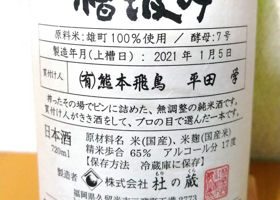 槽汲み
原料米:雄町100%使用 / 酵母:7号
製造年月(上槽日) : 2021年1月5日
買付人
(有)熊本飛鳥 平田 学
搾ったその場でビンに詰めた、無調整の純米酒です。
買付人がきき酒をして、プロの目で選んだ一本です。
日本酒
720ml
原材料名 米(国産)、米麹(国産米)
精米歩合 65% アルコール分 17度
【保存方法 冷蔵庫に保存】
製造者 株式会社 杜の蔵
もり くら
福岡県久留米市三潴町玉満2773